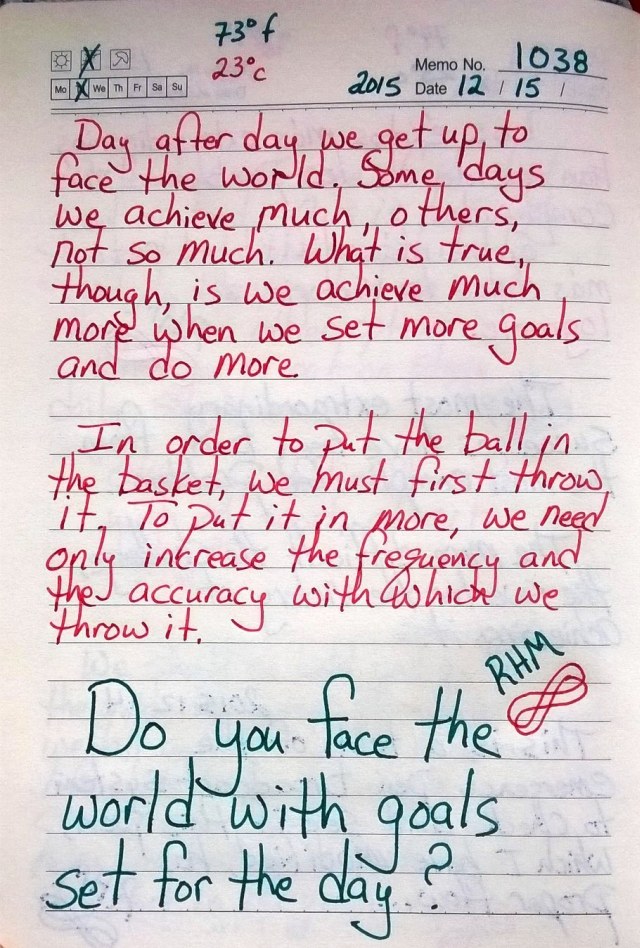 73° f
23°c
Memo No. 1038
2015 Date 12 / 15 /
Mo Tu We Th Fr Sa Su
Day after day we get up to
face the world. Some days
we achieve much, others,
not so much. What is true,
though, is we achieve much
more when we set more goals
and do more.
In order to put the ball in
the basket, we must first throw
it. To put it in more, we need
only increase the frequency and
the accuracy with which we
throw it.
RHM
Do you face the
world with goals
set for the day?